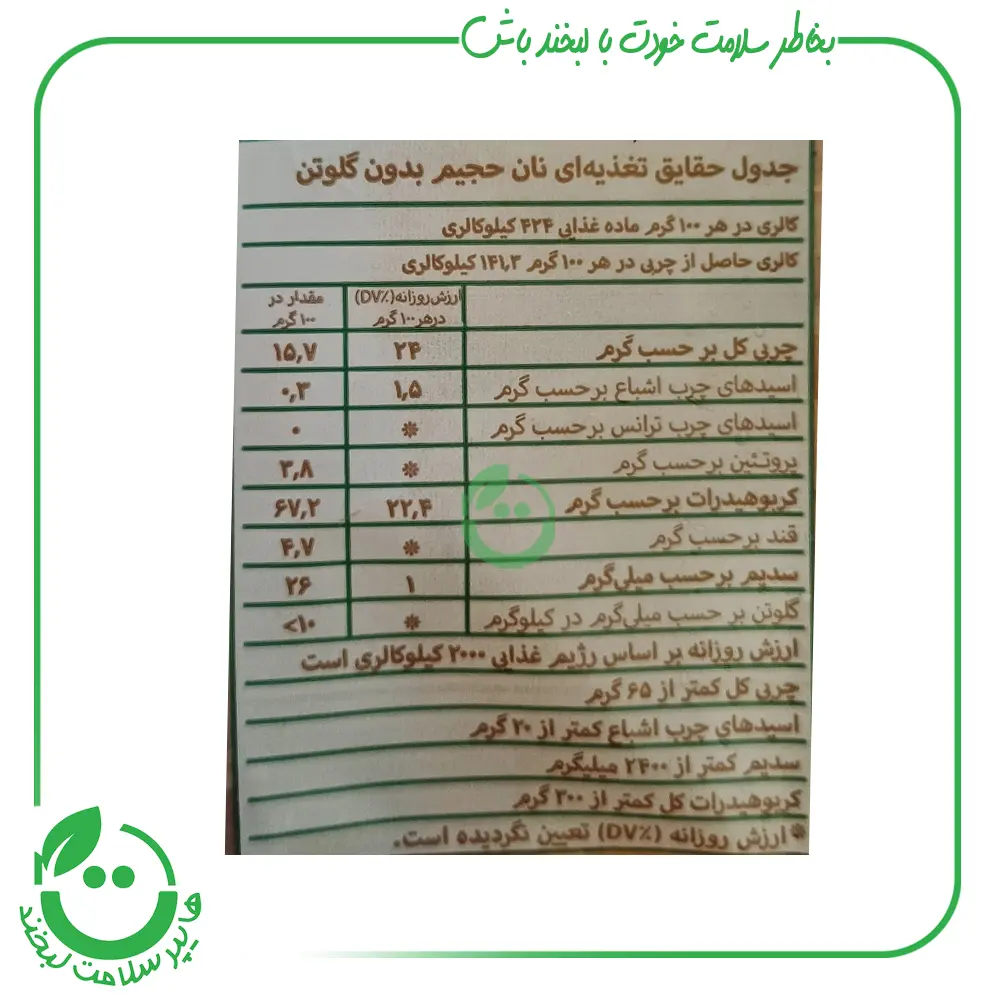 بخاطر سلامت خودت با لبخند باش
جدول حقایق تغذیه‌ای نان حجیم بدون گلوتن
کالری در هر ۱۰۰ گرم ماده غذایی ۴۲۴ کیلوکالری
کالری حاصل از چربی در هر ۱۰۰ گرم ۱۴۱٫۳ کیلوکالری
ارزش روزانه(DV٪) در هر ۱۰۰ گرم مقدار در ۱۰۰ گرم
چربی کل بر حسب گرم ۲۴ ۱۵٫۷
اسیدهای چرب اشباع بر حسب گرم ۱٫۵ ۰٫۳
اسیدهای چرب ترانس بر حسب گرم * ۰
پروتئین بر حسب گرم * ۳٫۸
کربوهیدرات بر حسب گرم ۲۲٫۴ ۶۷٫۲
قند بر حسب گرم * ۴٫۷
سدیم بر حسب میلی‌گرم ۱ ۲۶
گلوتن بر حسب میلی‌گرم در کیلوگرم * <۱۰
ارزش روزانه بر اساس رژیم غذایی ۲۰۰۰ کیلوکالری است
چربی کل کمتر از ۶۵ گرم
اسیدهای چرب اشباع کمتر از ۲۰ گرم
سدیم کمتر از ۲۴۰۰ میلیگرم
کربوهیدرات کل کمتر از ۳۰۰ گرم
* ارزش روزانه (DV٪) تعیین نگردیده است.
هایپر سلامت لبخند